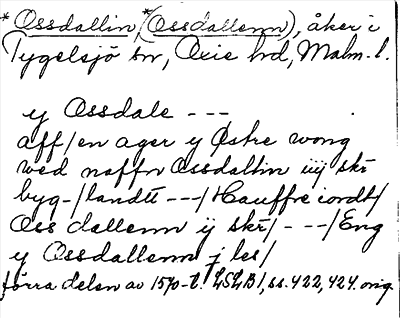 *Ossdallin, *(Ossdallenn), åker i
Tygelsjö sn, Oxie hd, Malm. l.
y Ossdale - - -
aff/en ager y Østre wong
wed naffn Ossdallin iiij skr
byg-/landtt - - -/Hauffre iordt/
Oss dallenn ij skr/ - - -/Eng
y Ossdallenn j les/
förra delen av 1570-t. LSLB 1, ss. 422, 424. orig.